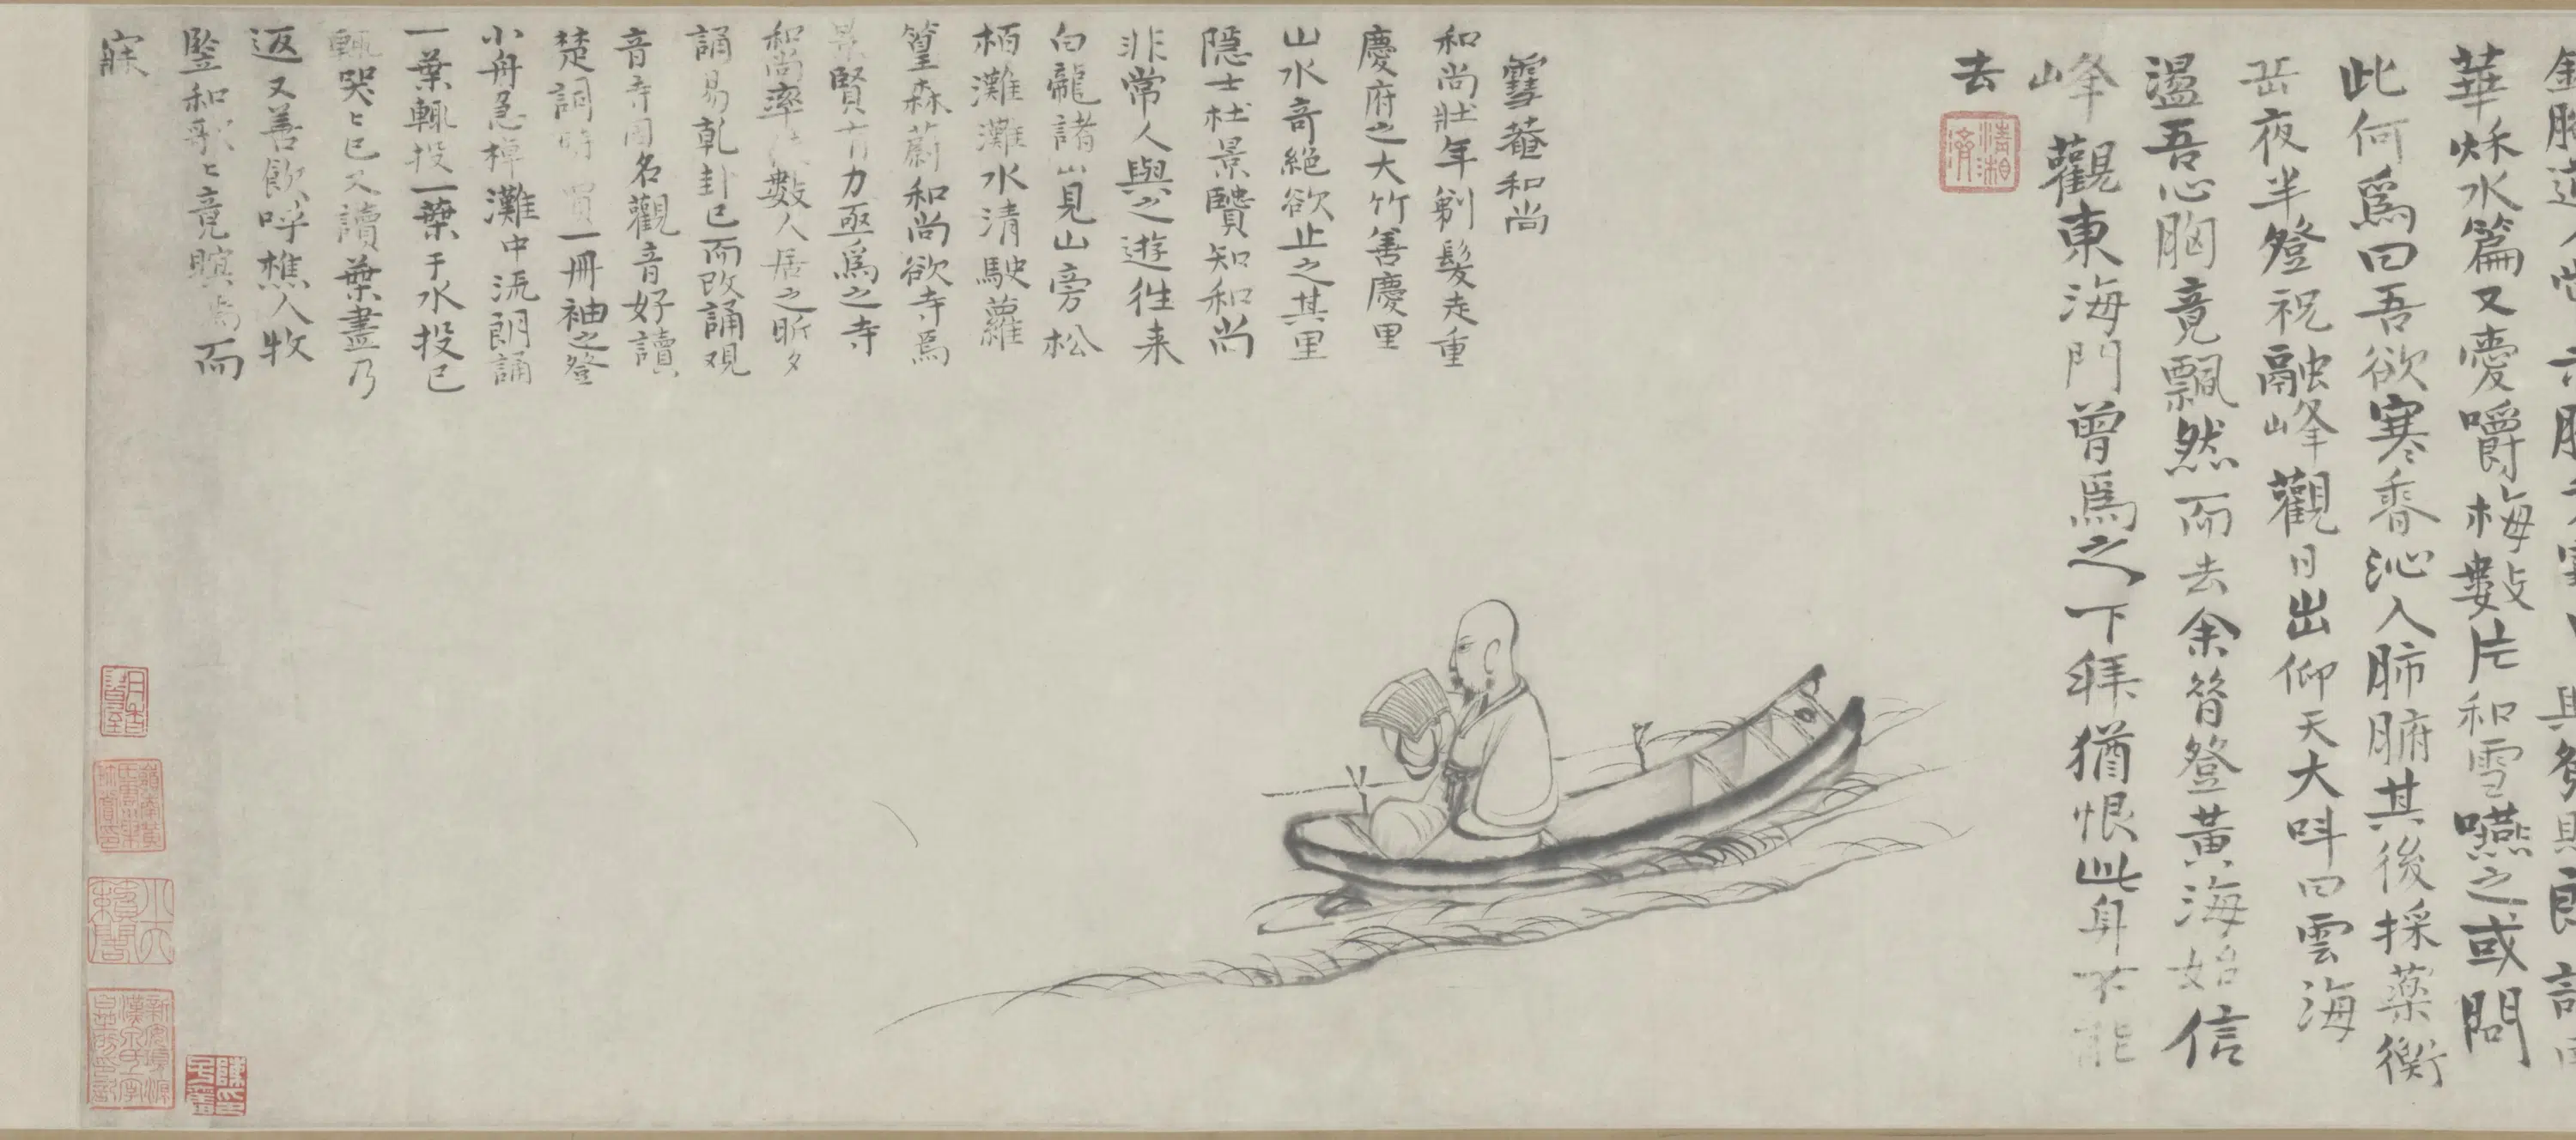 華秌水篇又愛嚼梅數片和雪嚥之或問
此何爲曰吾欲寒香沁入肺腑其後採藥衡
岳夜半登祝融峰觀日出仰天大呌曰雲海
盪吾心胸竟飄然而去余昝登黃海始信
峰觀東海門曾爲之下拜猶恨此身不能
去
清湘
濟
雪菴和尚
和尚壯年剃髮走重
慶府之大竹善慶里
山水奇絕欲止之其里
隱士杜景賢知和尚
非常人與之遊徃来
白龍諸山見山旁松
栢灘灘水清駛蘿
篁森蔚和尚欲寺焉
景賢有力亟爲之寺
和尚率徒數人居之昕夕
誦易乾卦已而改誦观
音寺因名觀音好讀
楚詞時買一冊袖之登
小舟急棹灘中流朗誦
一葉輒投一葉于水投已
輒哭〻已又讀葉盡乃
返又善飲呼樵人牧
豎和歌〻竟瞑焉而
寐